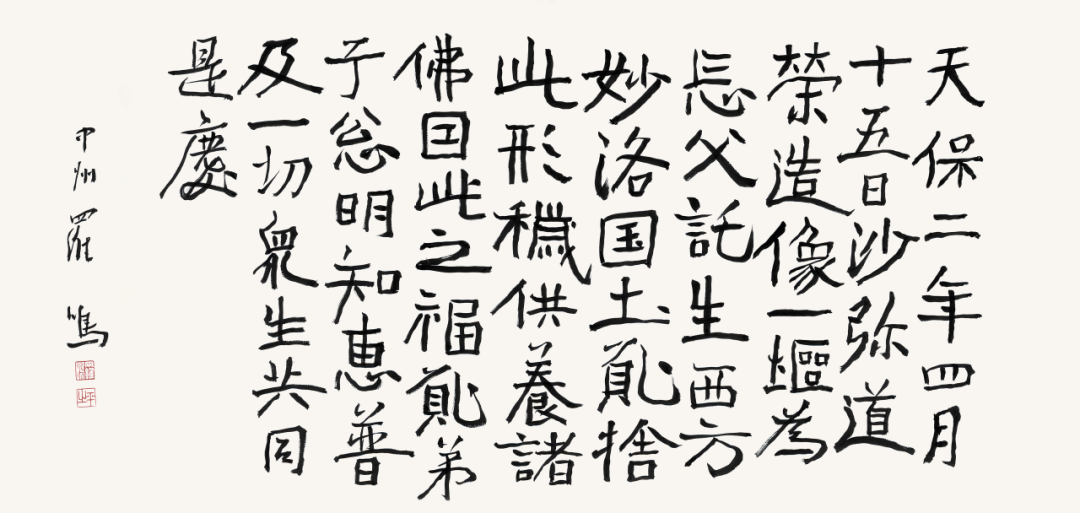 天保二年四月
十五日沙弥道
榮造像一塸為
忘父託生西方
妙洛国土捨
此形穢供養諸
佛国此之福弟
子忩明知惠普
及一切衆生共同
是慶
中州羅鳴